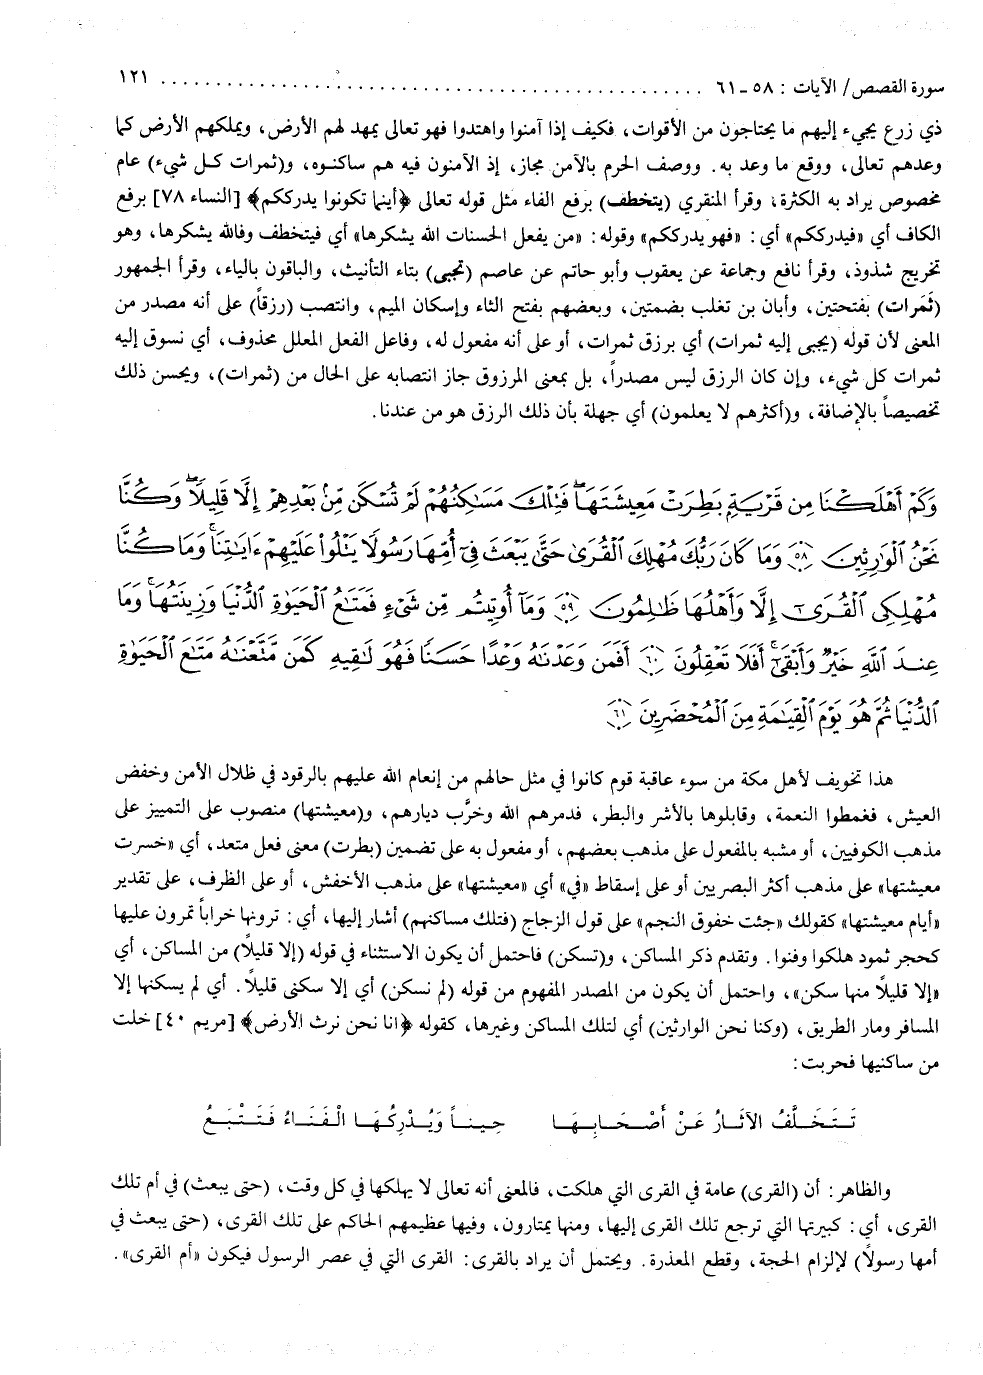 سورة القصص/ الآيات : ٥٨ ـ ٦١ ................................................ ١٢١
ذي زرع يجيء إليهم ما يحتاجون من الأقوات، فكيف إذا آمنوا واهتدوا فهو تعالى يمهد لهم الأرض، ويملكهم الأرض كما
وعدهم تعالى، ووقع ما وعد به. ووصف الحرم بالأمن مجاز، إذ الآمنون فيه هم ساكنوه، و(ثمرات كل شيء) عام
مخصوص يراد به الكثرة، وقرأ المنقري (يتخطف) برفع الفاء مثل قوله تعالى ﴿أينما تكونوا يدرككم﴾ [النساء ٧٨] برفع
الكاف أي «فيدرككم» أي : «فهو يدرككم» وقوله : «من يفعل الحسنات الله يشكرها» أي فيتخطف وفالله يشكرها، وهو
تخريج شذوذ، وقرأ نافع وجماعة عن يعقوب وأبو حاتم عن عاصم (تجبى) بتاء التأنيث، والباقون بالياء، وقرأ الجمهور
(ثَمَرات) بفتحتين، وأبان بن تغلب بضمتين، وبعضهم بفتح الثاء وإسكان الميم، وانتصب (رزقاً) على أنه مصدر من
المعنى لأن قوله (يجبى إليه ثمرات) أي برزق ثمرات، أو على أنه مفعول له، وفاعل الفعل المعلل محذوف، أي نسوق إليه
ثمرات كل شيء، وإن كان الرزق ليس مصدراً، بل بمعنى المرزوق جاز انتصابه على الحال من (ثمرات)، ويحسن ذلك
تخصيصاً بالإضافة، و(أكثرهم لا يعلمون) أي جهلة بأن ذلك الرزق هو من عندنا.
وَكَمْ أَهْلَكْنَا مِن قَرْيَةٍ بَطِرَتْ مَعِيشَتَهَا ۖ فَتِلْكَ مَسَٰكِنُهُمْ لَمْ تُسْكَن مِّنۢ بَعْدِهِمْ إِلَّا قَلِيلًا ۖ وَكُنَّا
نَحْنُ ٱلْوَٰرِثِينَ ﴿٥٨﴾ وَمَا كَانَ رَبُّكَ مُهْلِكَ ٱلْقُرَىٰ حَتَّىٰ يَبْعَثَ فِىٓ أُمِّهَا رَسُولًا يَتْلُوا۟ عَلَيْهِمْ ءَايَٰتِنَا ۚ وَمَا كُنَّا
مُهْلِكِى ٱلْقُرَىٰٓ إِلَّا وَأَهْلُهَا ظَٰلِمُونَ ﴿٥٩﴾ وَمَآ أُوتِيتُم مِّن شَىْءٍ فَمَتَٰعُ ٱلْحَيَوٰةِ ٱلدُّنْيَا وَزِينَتُهَا ۚ وَمَا
عِندَ ٱللَّهِ خَيْرٌ وَأَبْقَىٰٓ ۚ أَفَلَا تَعْقِلُونَ ﴿٦٠﴾ أَفَمَن وَعَدْنَٰهُ وَعْدًا حَسَنًا فَهُوَ لَٰقِيهِ كَمَن مَّتَّعْنَٰهُ مَتَٰعَ ٱلْحَيَوٰةِ
ٱلدُّنْيَا ثُمَّ هُوَ يَوْمَ ٱلْقِيَٰمَةِ مِنَ ٱلْمُحْضَرِينَ ﴿٦١﴾
هذا تخويف لأهل مكة من سوء عاقبة قوم كانوا في مثل حالهم من إنعام الله عليهم بالرقود في ظلال الأمن وخفض
العيش، فغمطوا النعمة، وقابلوها بالأشر والبطر، فدمرهم الله وخرَّب ديارهم، و(معيشتها) منصوب على التمييز على
مذهب الكوفيين، أو مشبه بالمفعول على مذهب بعضهم، أو مفعول به على تضمين (بطرت) معنى فعل متعد، أي «خسرت
معيشتها» على مذهب أكثر البصريين أو على إسقاط «في» أي «معيشتها» على مذهب الأخفش، أو على الظرف، على تقدير
«أيام معيشتها» كقولك «جئت خفوق النجم» على قول الزجاج (فتلك مساكنهم) أشار إليها، أي : ترونها خراباً تمرون عليها
كحجر ثمود هلكوا وفنوا. وتقدم ذكر المساكن، و(تسكن) فاحتمل أن يكون الاستثناء في قوله (إلا قليلاً) من المساكن، أي
«إلا قليلاً منها سكن»، واحتمل أن يكون من المصدر المفهوم من قوله (لم تسكن) أي إلا سكنى قليلاً. أي لم يسكنها إلا
المسافر ومار الطريق، (وكنا نحن الوارثين) أي لتلك المساكن وغيرها، كقوله ﴿انا نحن نرث الأرض﴾ [مريم ٤٠] خلت
من ساكنيها فخربت :
تَتَخَلَّفُ الآثَارُ عَنْ أَصْحَابِهَا حِيناً وَيُدْرِكُهَا الْفَنَاءُ فَتَتْبَعُ
والظاهر : أن (القرى) عامة في القرى التي هلكت، فالمعنى أنه تعالى لا يهلكها في كل وقت، (حتى يبعث) في أم تلك
القرى، أي : كبيرتها التي ترجع تلك القرى إليها، ومنها يمتارون، وفيها عظيمهم الحاكم على تلك القرى، (حتى يبعث في
أمها رسولاً) لإلزام الحجة، وقطع المعذرة. ويحتمل أن يراد بالقرى : القرى التي في عصر الرسول فيكون «أم القرى».